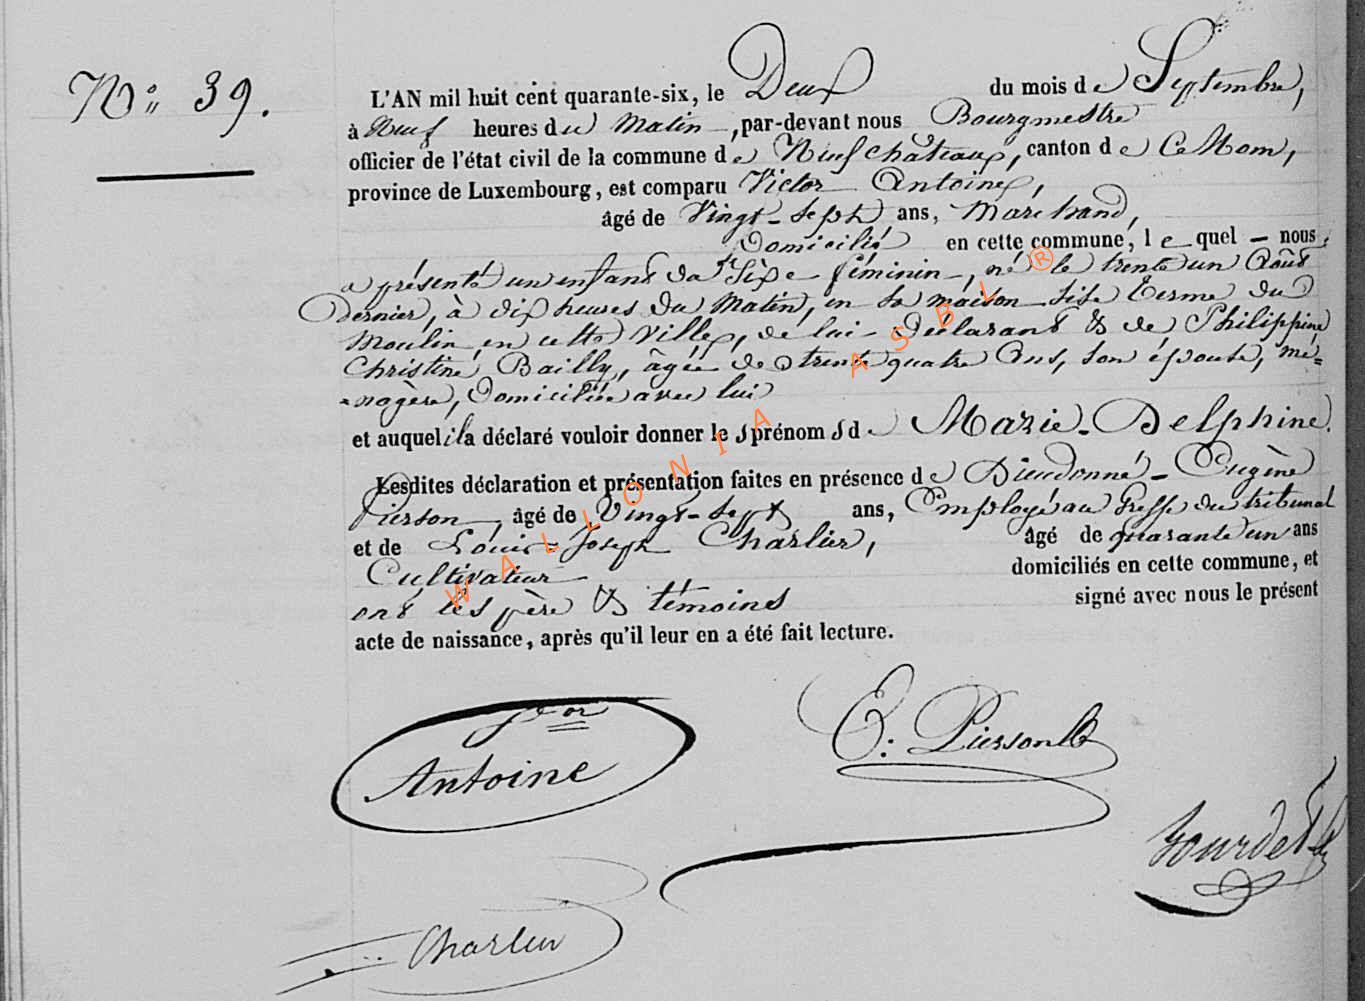 N° 39.
L'AN mil huit cent quarante-six, le Deux du mois de Septembre,
à Neuf heures du Matin, par-devant nous Bourgmestre
officier de l'état civil de la commune de Neufchâteau, canton de Ce Nom,
province de Luxembourg, est comparu Victor Antoine,
âgé de Vingt-sept ans, Marchand,
Domicilié en cette commune, lequel nous
a présenté un enfant du Sexe féminin, né le trente un Août
Dernier, à dix heures du Matin, en sa maison sise Terme du
Moulin en cette Ville, de lui Déclarant & de Philippine
Christine Bailly, âgée de trente quatre Ans, son épouse, mé=
nagère, Domiciliée avec lui
et auquel il a déclaré vouloir donner les prénoms de Marie-Delphine.
Lesdites déclaration et présentation faites en présence de Dieudonné-Eugène
Pierson, âgé de Vingt-sept ans, Employé au Greffe du tribunal
et de Louis-Joseph Charlier, âgé de quarante un ans
Cultivateur domiciliés en cette commune, et
ont les père & témoins signé avec nous le présent
acte de naissance, après qu'il leur en a été fait lecture.
WALLONIA ASBL ®
Vor Antoine
E: Pierson
Charlier